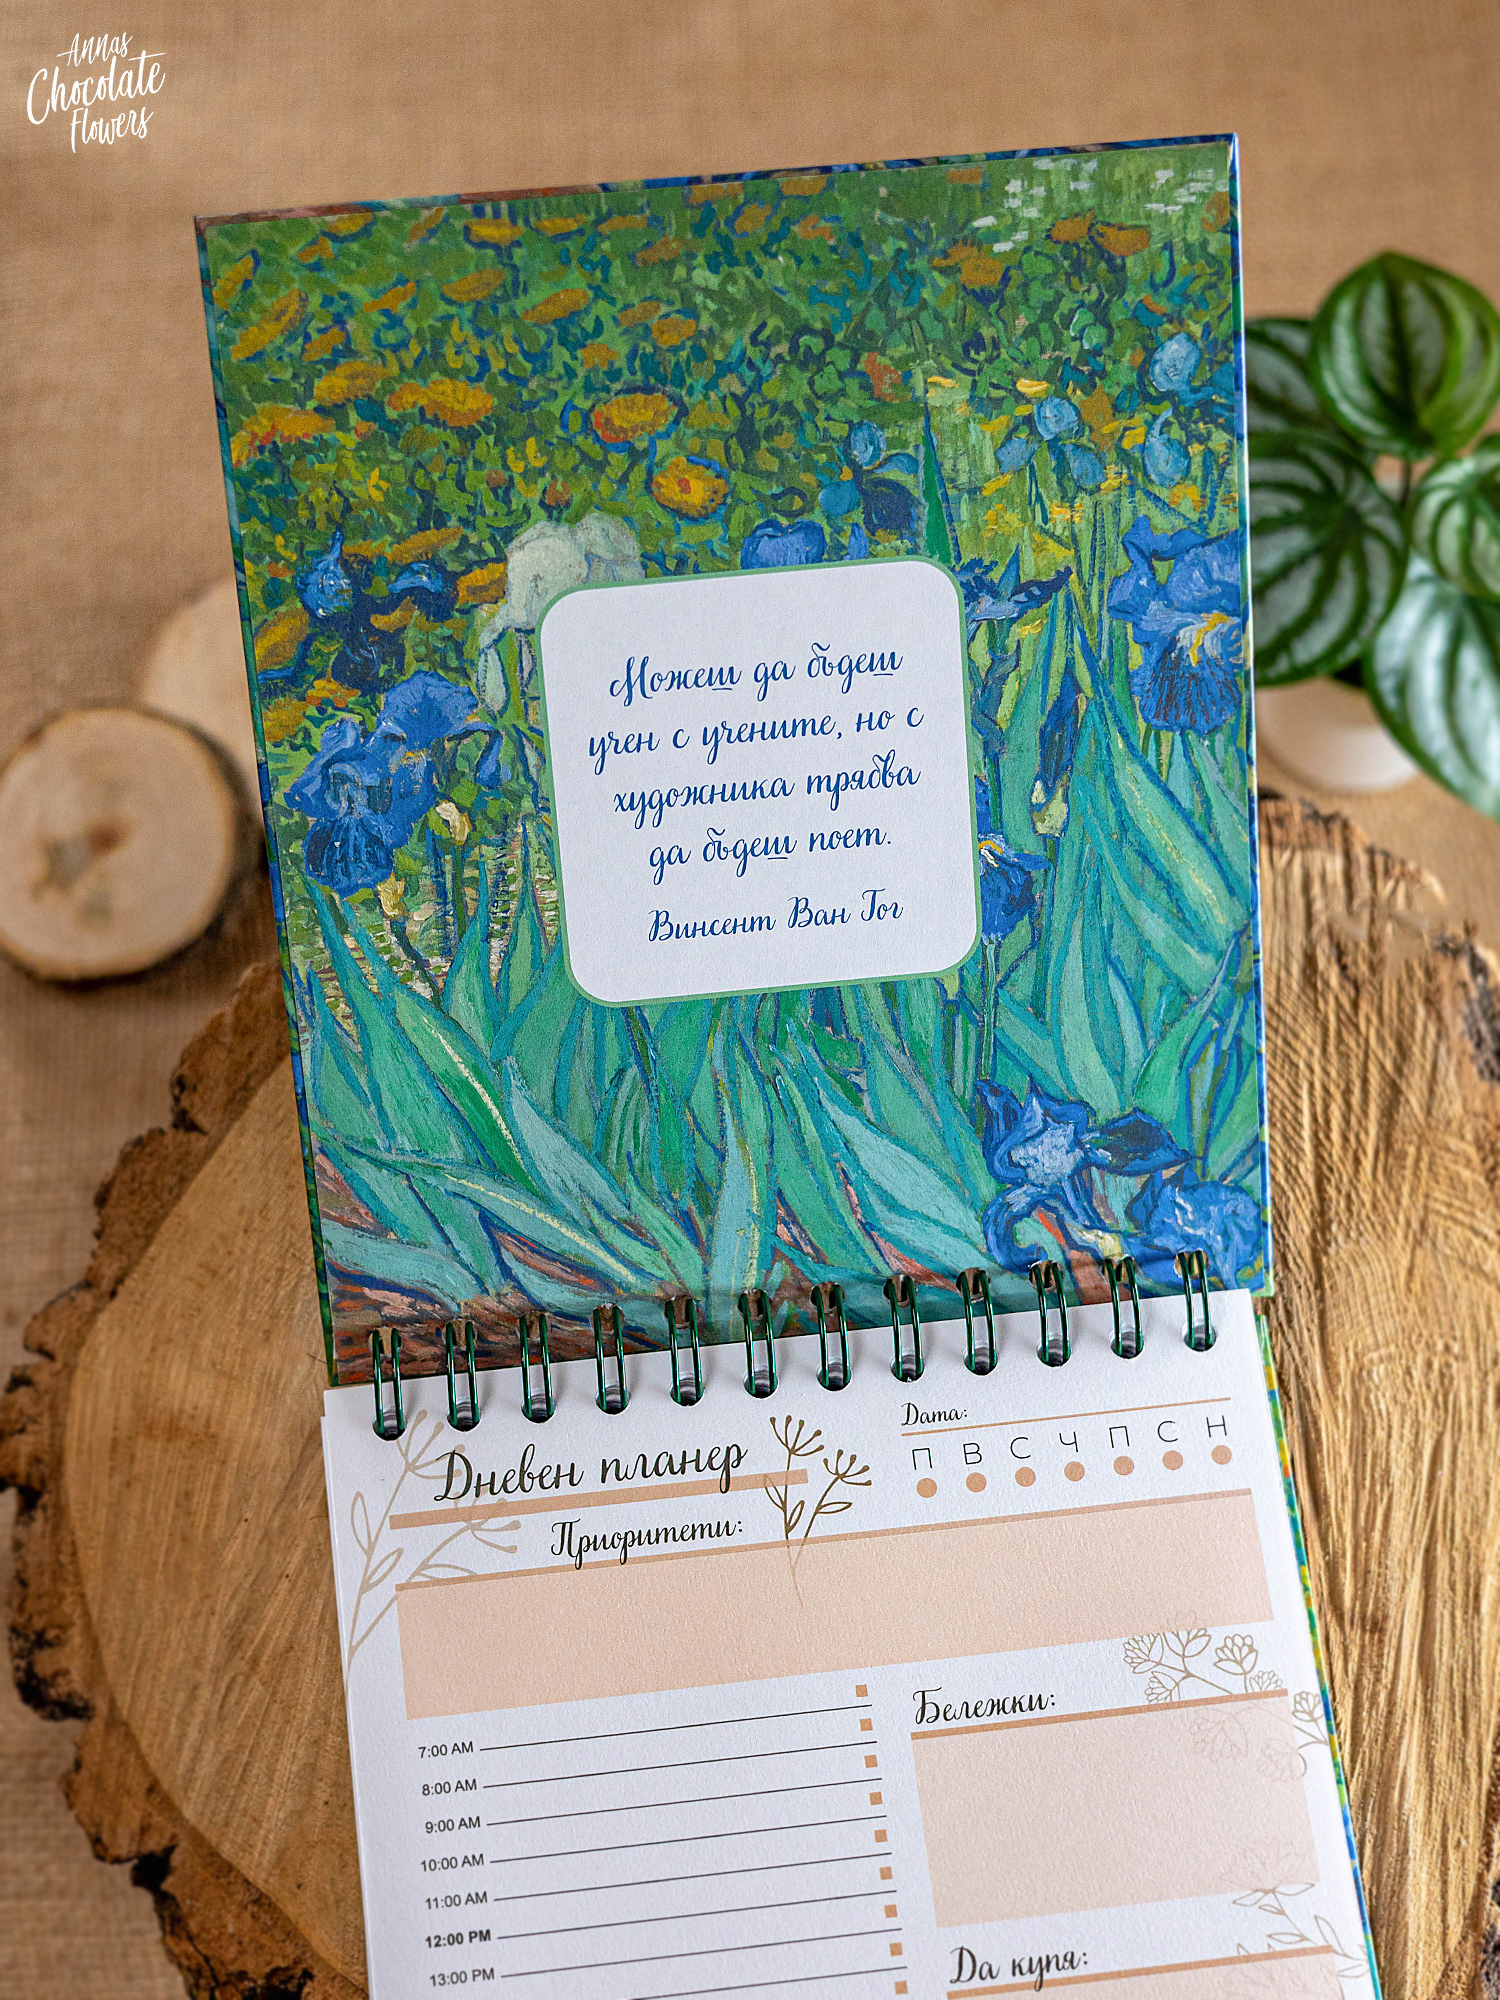 Annas
Chocolate
Flowers
Можеш да бъдеш
учен с учените, но с
художника трябва
да бъдеш поет.
Винсент Ван Гог
Дневен планер
Дата:
П В С Ч П С Н
Приоритети:
7:00 AM
8:00 AM
9:00 AM
10:00 AM
11:00 AM
12:00 PM
13:00 PM
Бележки:
Да купя: